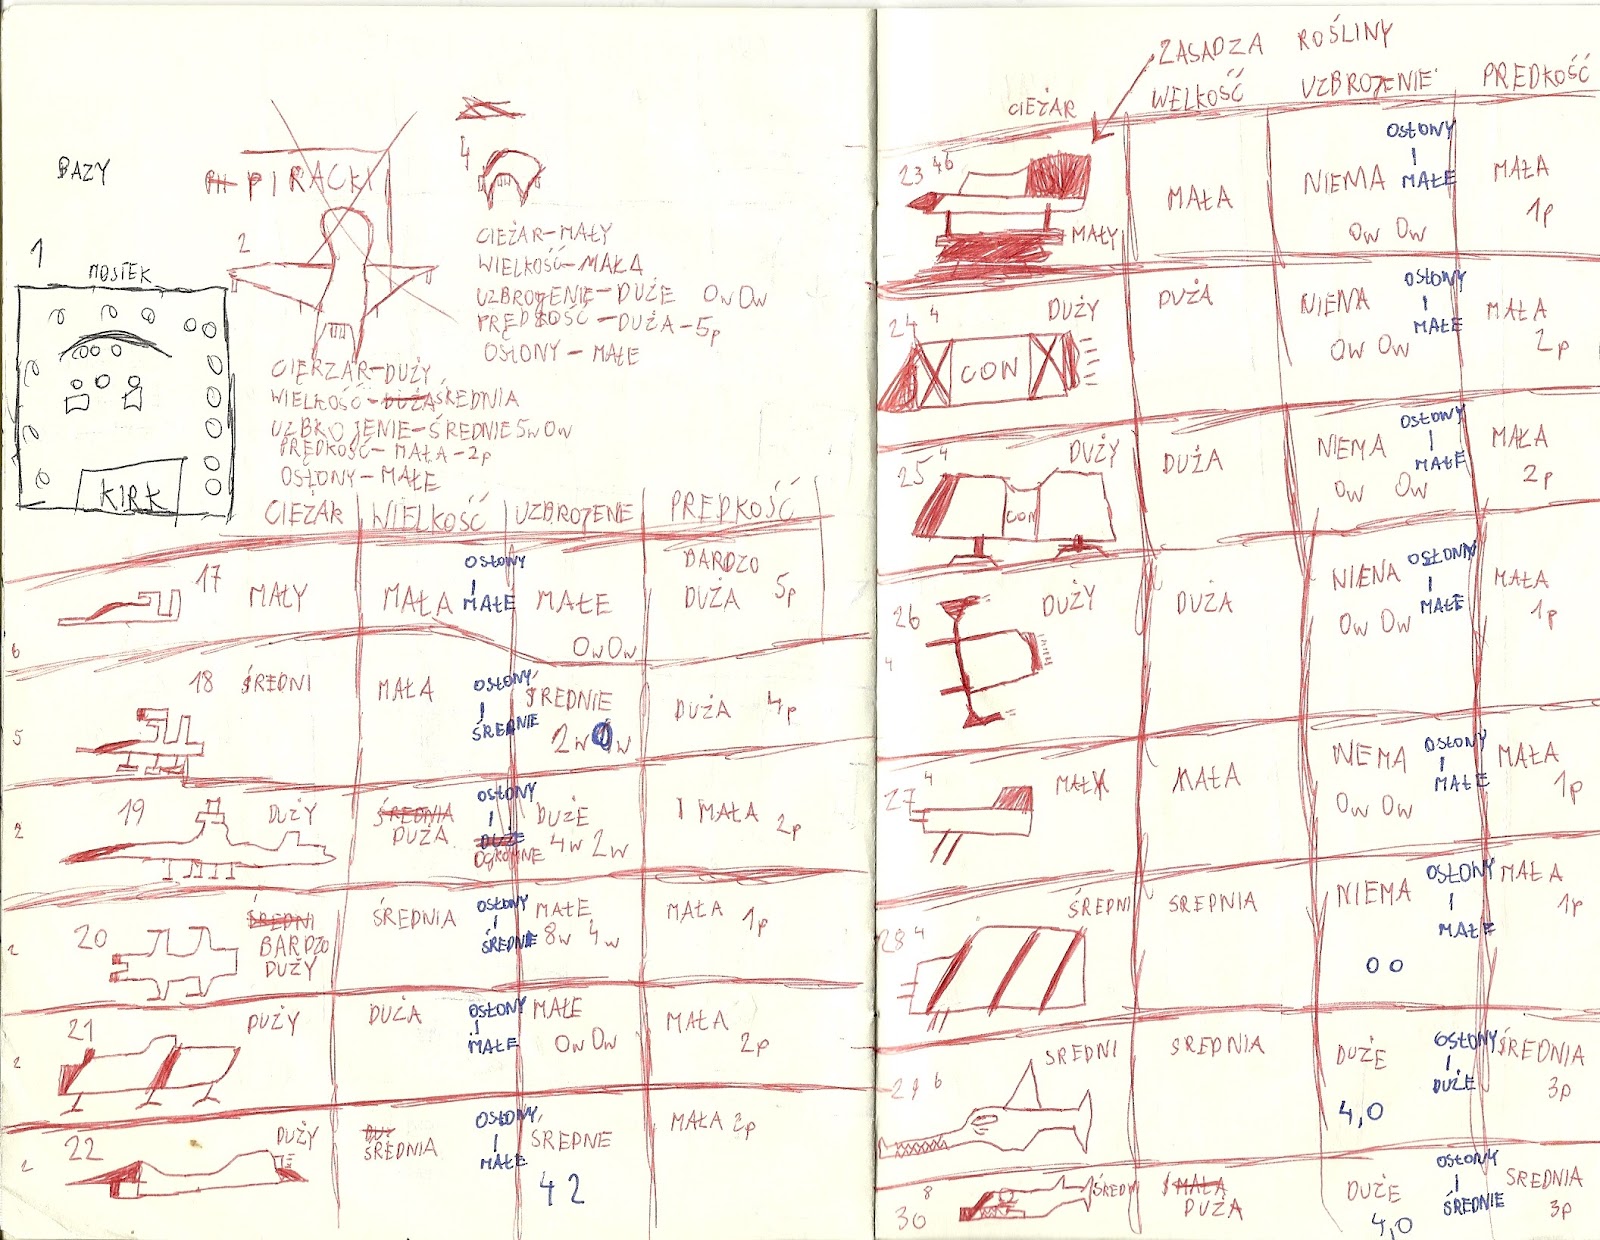 BAZY
1
MOSTEK
KIRK
PIRACKI
2
CIĘRZAR-DUŻY
WIELKOŚĆ-DUŻA ŚREDNIA
UZBROJENIE-ŚREDNIE 5w 0w
PRĘDKOŚĆ-MAŁA-2p
OSŁONY-MAŁE
4
CIĘŻAR-MAŁY
WIELKOŚĆ-MAŁA
UZBROJENIE-DUŻE 0w 0w
PRĘDKOŚĆ-DUŻA-5p
OSŁONY-MAŁE
CIĘŻAR WIELKOŚĆ UZBROJENE PRĘDKOŚĆ
17 MAŁY MAŁA OSŁONY | MAŁE MAŁE 0w 0w BARDZO DUŻA 5p
6
18 ŚREDNI MAŁA OSŁONY | ŚREDNIE ŚREDNIE 2w 0w DUŻA 4p
5
19 DUŻY ŚREDNIA DUŻA OSŁONY | DUŻE DUŻE 4w 2w MAŁA 2p
2
20 ŚREDNI BARDZO DUŻY ŚREDNIA OSŁONY | ŚREDNIE MAŁE 8w 4w MAŁA 1p
2
21 DUŻY DUŻA OSŁONY | MAŁE MAŁE 0w 0w MAŁA 2p
2
22 DUŻY ŚREDNIA OSŁONY | MAŁE ŚREDNE 4 2 MAŁA 2p
2
ZASADZA ROŚLINY
CIĘŻAR WELKOŚĆ UZBROJENIE PRĘDKOŚĆ
23 46 MAŁY MAŁA NIEMA 0w 0w OSŁONY | MAŁE MAŁA 1p
24 4 CON DUŻY DUŻA NIEMA 0w 0w OSŁONY | MAŁE MAŁA 2p
25 4 CON DUŻY DUŻA NIEMA 0w 0w OSŁONY | MAŁE MAŁA 2p
26 4 DUŻY DUŻA NIEMA 0w 0w OSŁONY | MAŁE MAŁA 1p
27 4 MAŁY MAŁA NIEMA 0w 0w OSŁONY | MAŁE MAŁA 1p
28 4 ŚREDNI SREDNIA NIEMA 0 0 OSŁONY | MAŁE MAŁA 1p
29 6 SREDNI SREDNIA DUŻE 4,0 OSŁONY | DUŻE ŚREDNIA 3p
30 8 ŚREDNI MAŁA DUŻA DUŻE 4,0 OSŁONY | ŚREDNIE SREDNIA 3p